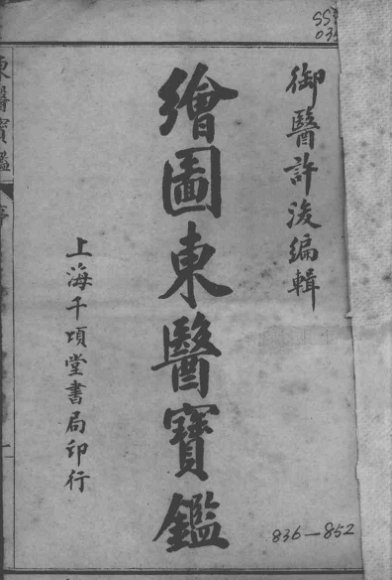 御醫許浚編輯
繪圖東醫寶鑑
上海千頃堂書局印行
836—852
東醫寶鑑
序